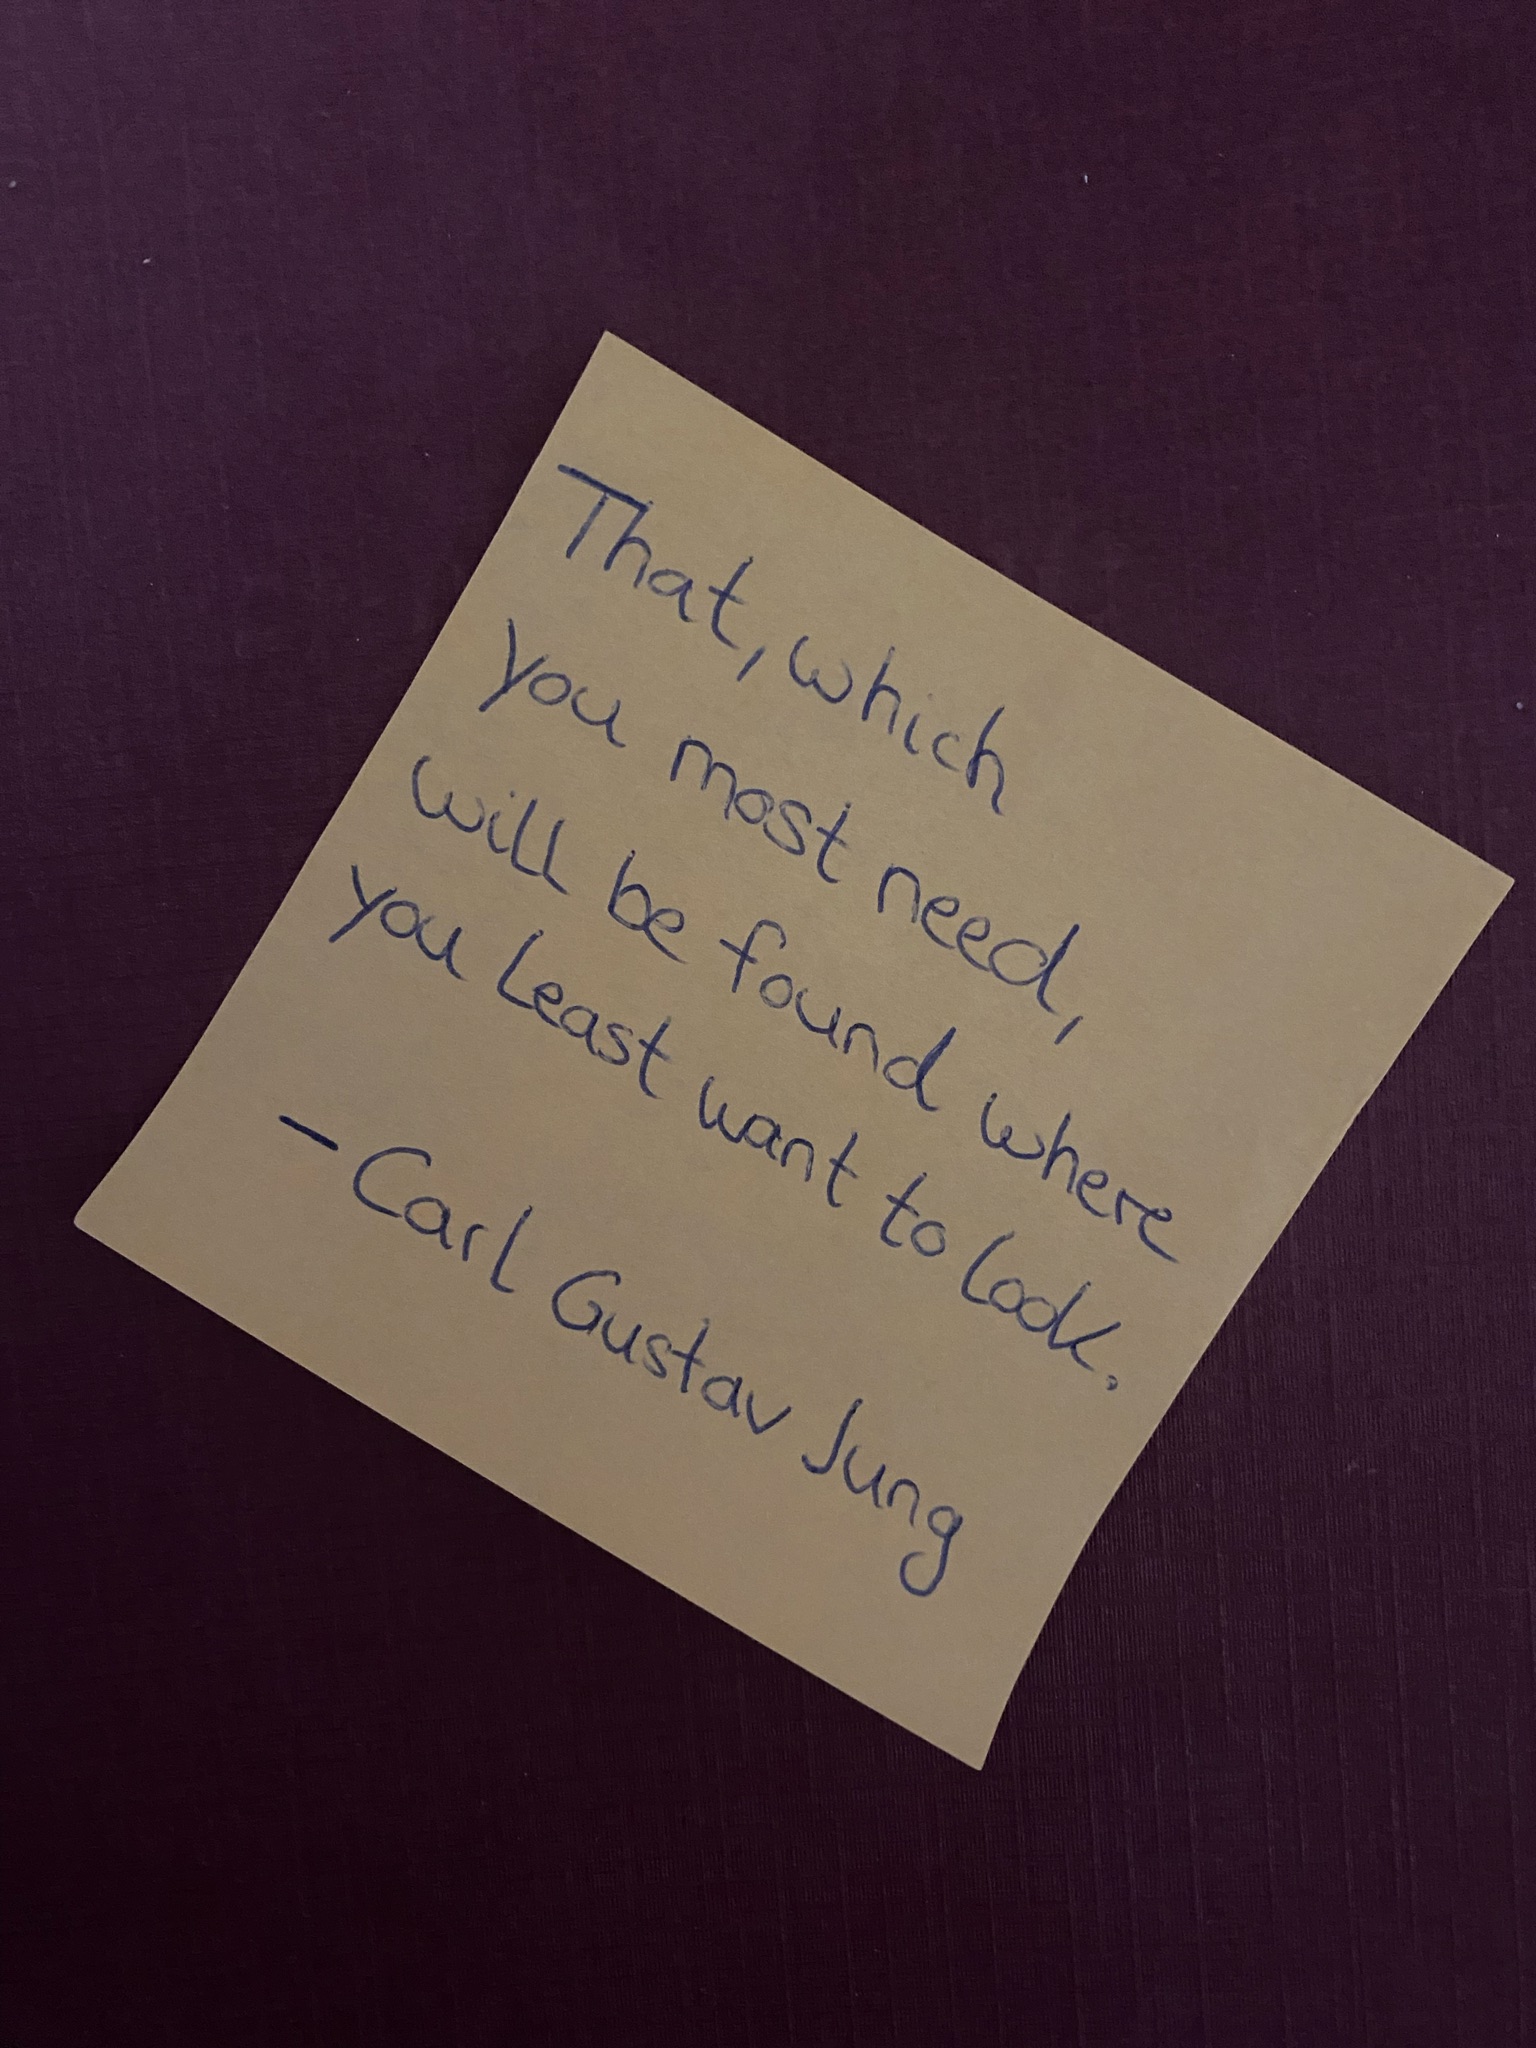 That, which
you most need,
will be found where
you least want to look.
- Carl Gustav Jung